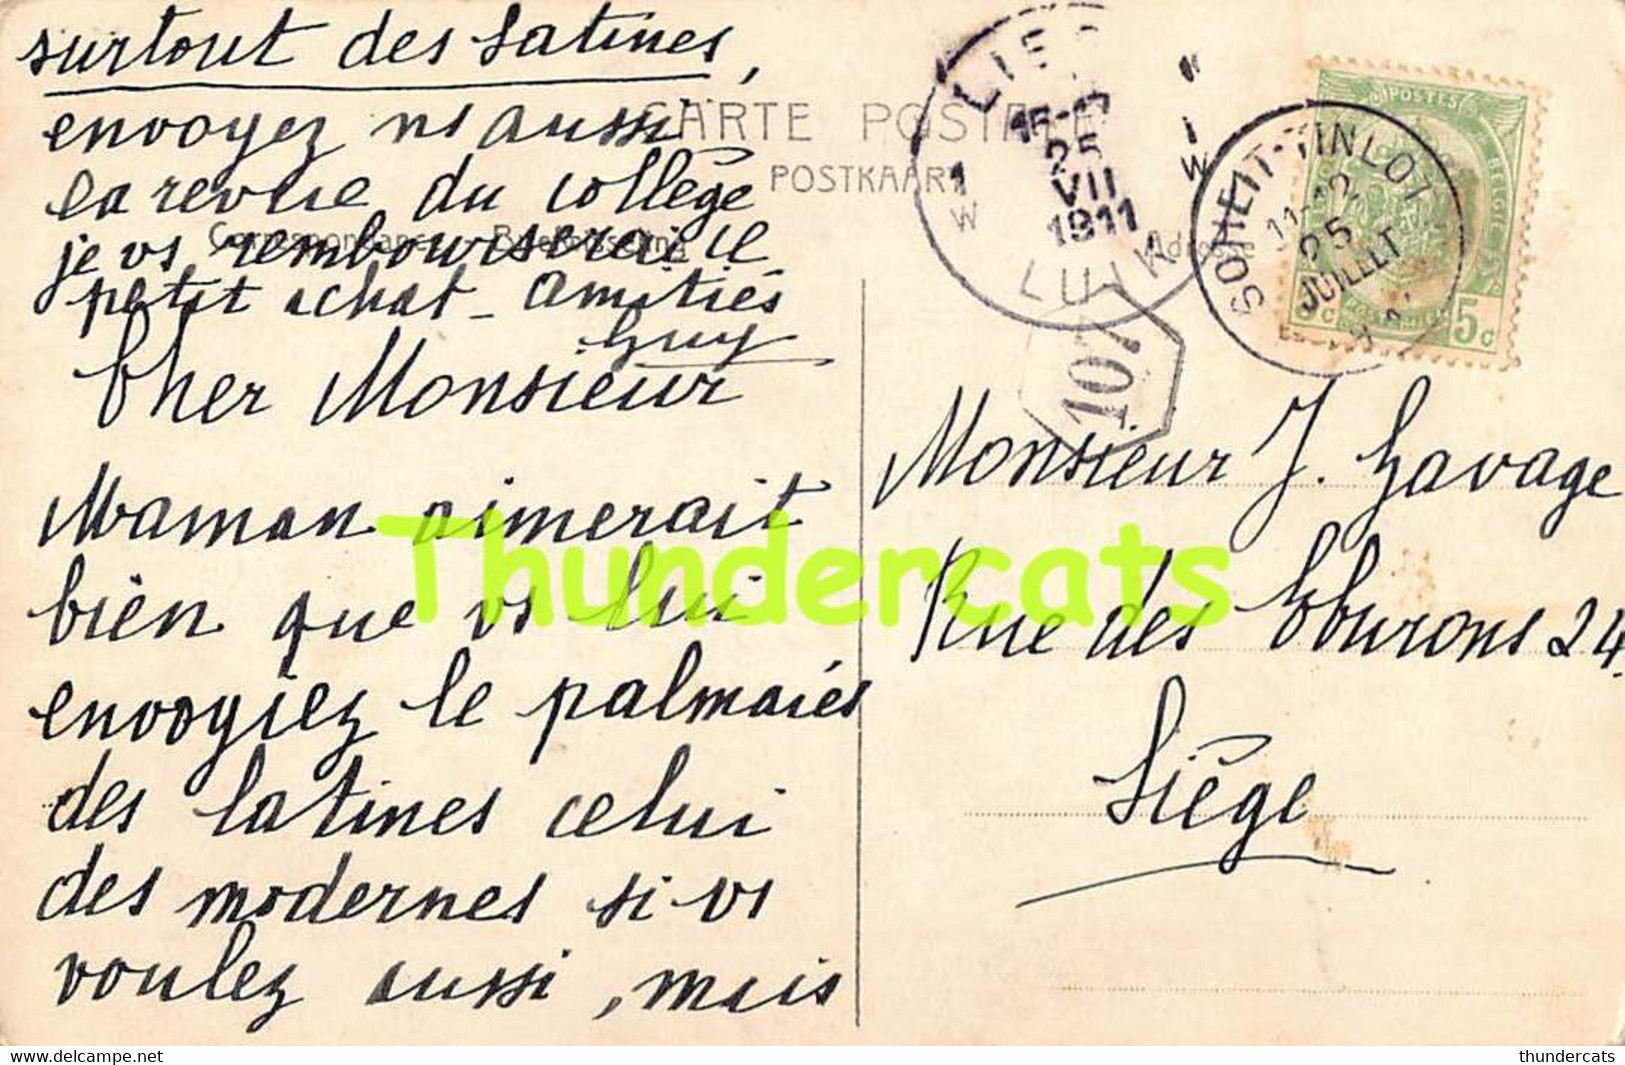 surtout des latines,
envoyez ns aussi
la revue du collège
je vs rembourserai le
petit achat - Amitiés
Guy
Cher Monsieur
Maman aimerait
bien que vs lui
envoyiez le palmarès
des latines celui
des modernes si vs
voulez aussi, mais
CARTE POSTALE
POSTKAART
Correspondance
Adresse
15-17
25
VII
1911
LUIK
1
W
1
W
107
SOHEIT-TINLOT
11-12
25
JUILLET
POSTES
BELGIQUE
5c
5c
Monsieur J. Gavage
Rue des Eburons 24.
Liège
Thundercats
www.delcampe.net
thundercats